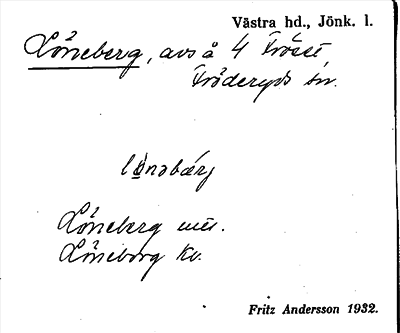 Västra hd., Jönk. l.
Löneberg, avs å 4 Fröset,
Fröderyds sn.
lönəbærj
Löneberg
Löneborg Kv.
Fritz Andersson 1932.